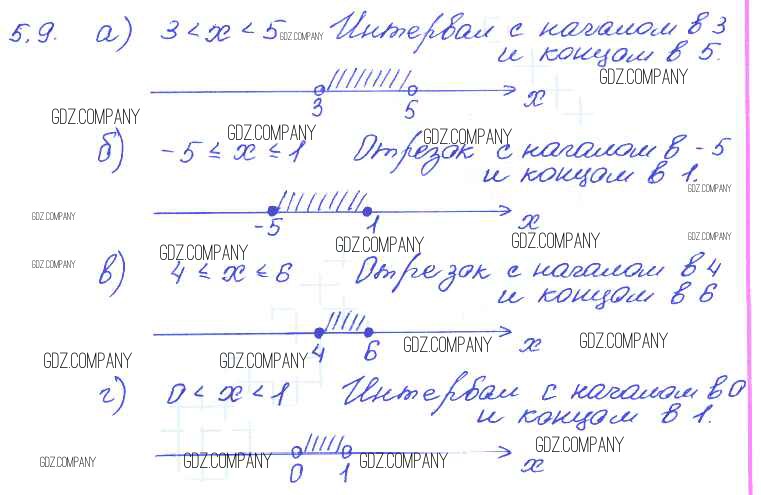 5.9. а) 3 < x < 5 GDZ.COMPANY Интервал с началом в 3
и концом в 5.
GDZ.COMPANY
3 5 x
GDZ.COMPANY
GDZ.COMPANY GDZ.COMPANY
б) -5 ≤ x ≤ 1 Отрезок с началом в -5
и концом в 1.
GDZ.COMPANY
GDZ.COMPANY
-5 1 x
GDZ.COMPANY GDZ.COMPANY GDZ.COMPANY GDZ.COMPANY
GDZ.COMPANY
в) 4 ≤ x ≤ 6 Отрезок с началом в 4
и концом в 6
4 6 GDZ.COMPANY x GDZ.COMPANY
GDZ.COMPANY GDZ.COMPANY
г) 0 < x < 1 Интервал с началом в 0
и концом в 1.
GDZ.COMPANY
GDZ.COMPANY GDZ.COMPANY GDZ.COMPANY
0 1 x